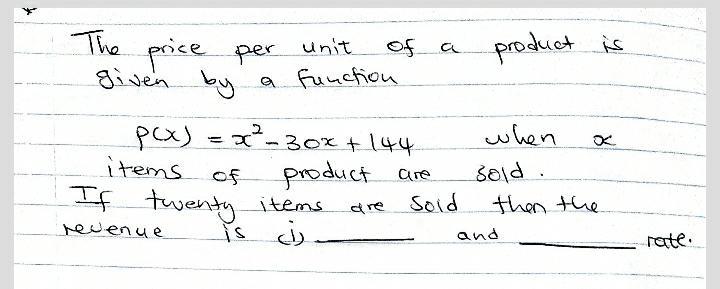 The price per unit of a product is
given by a function
p(x) = x² - 30x + 144 when x
items of product are sold.
If twenty items are sold then the
revenue is (i) ______ and ______ rate.